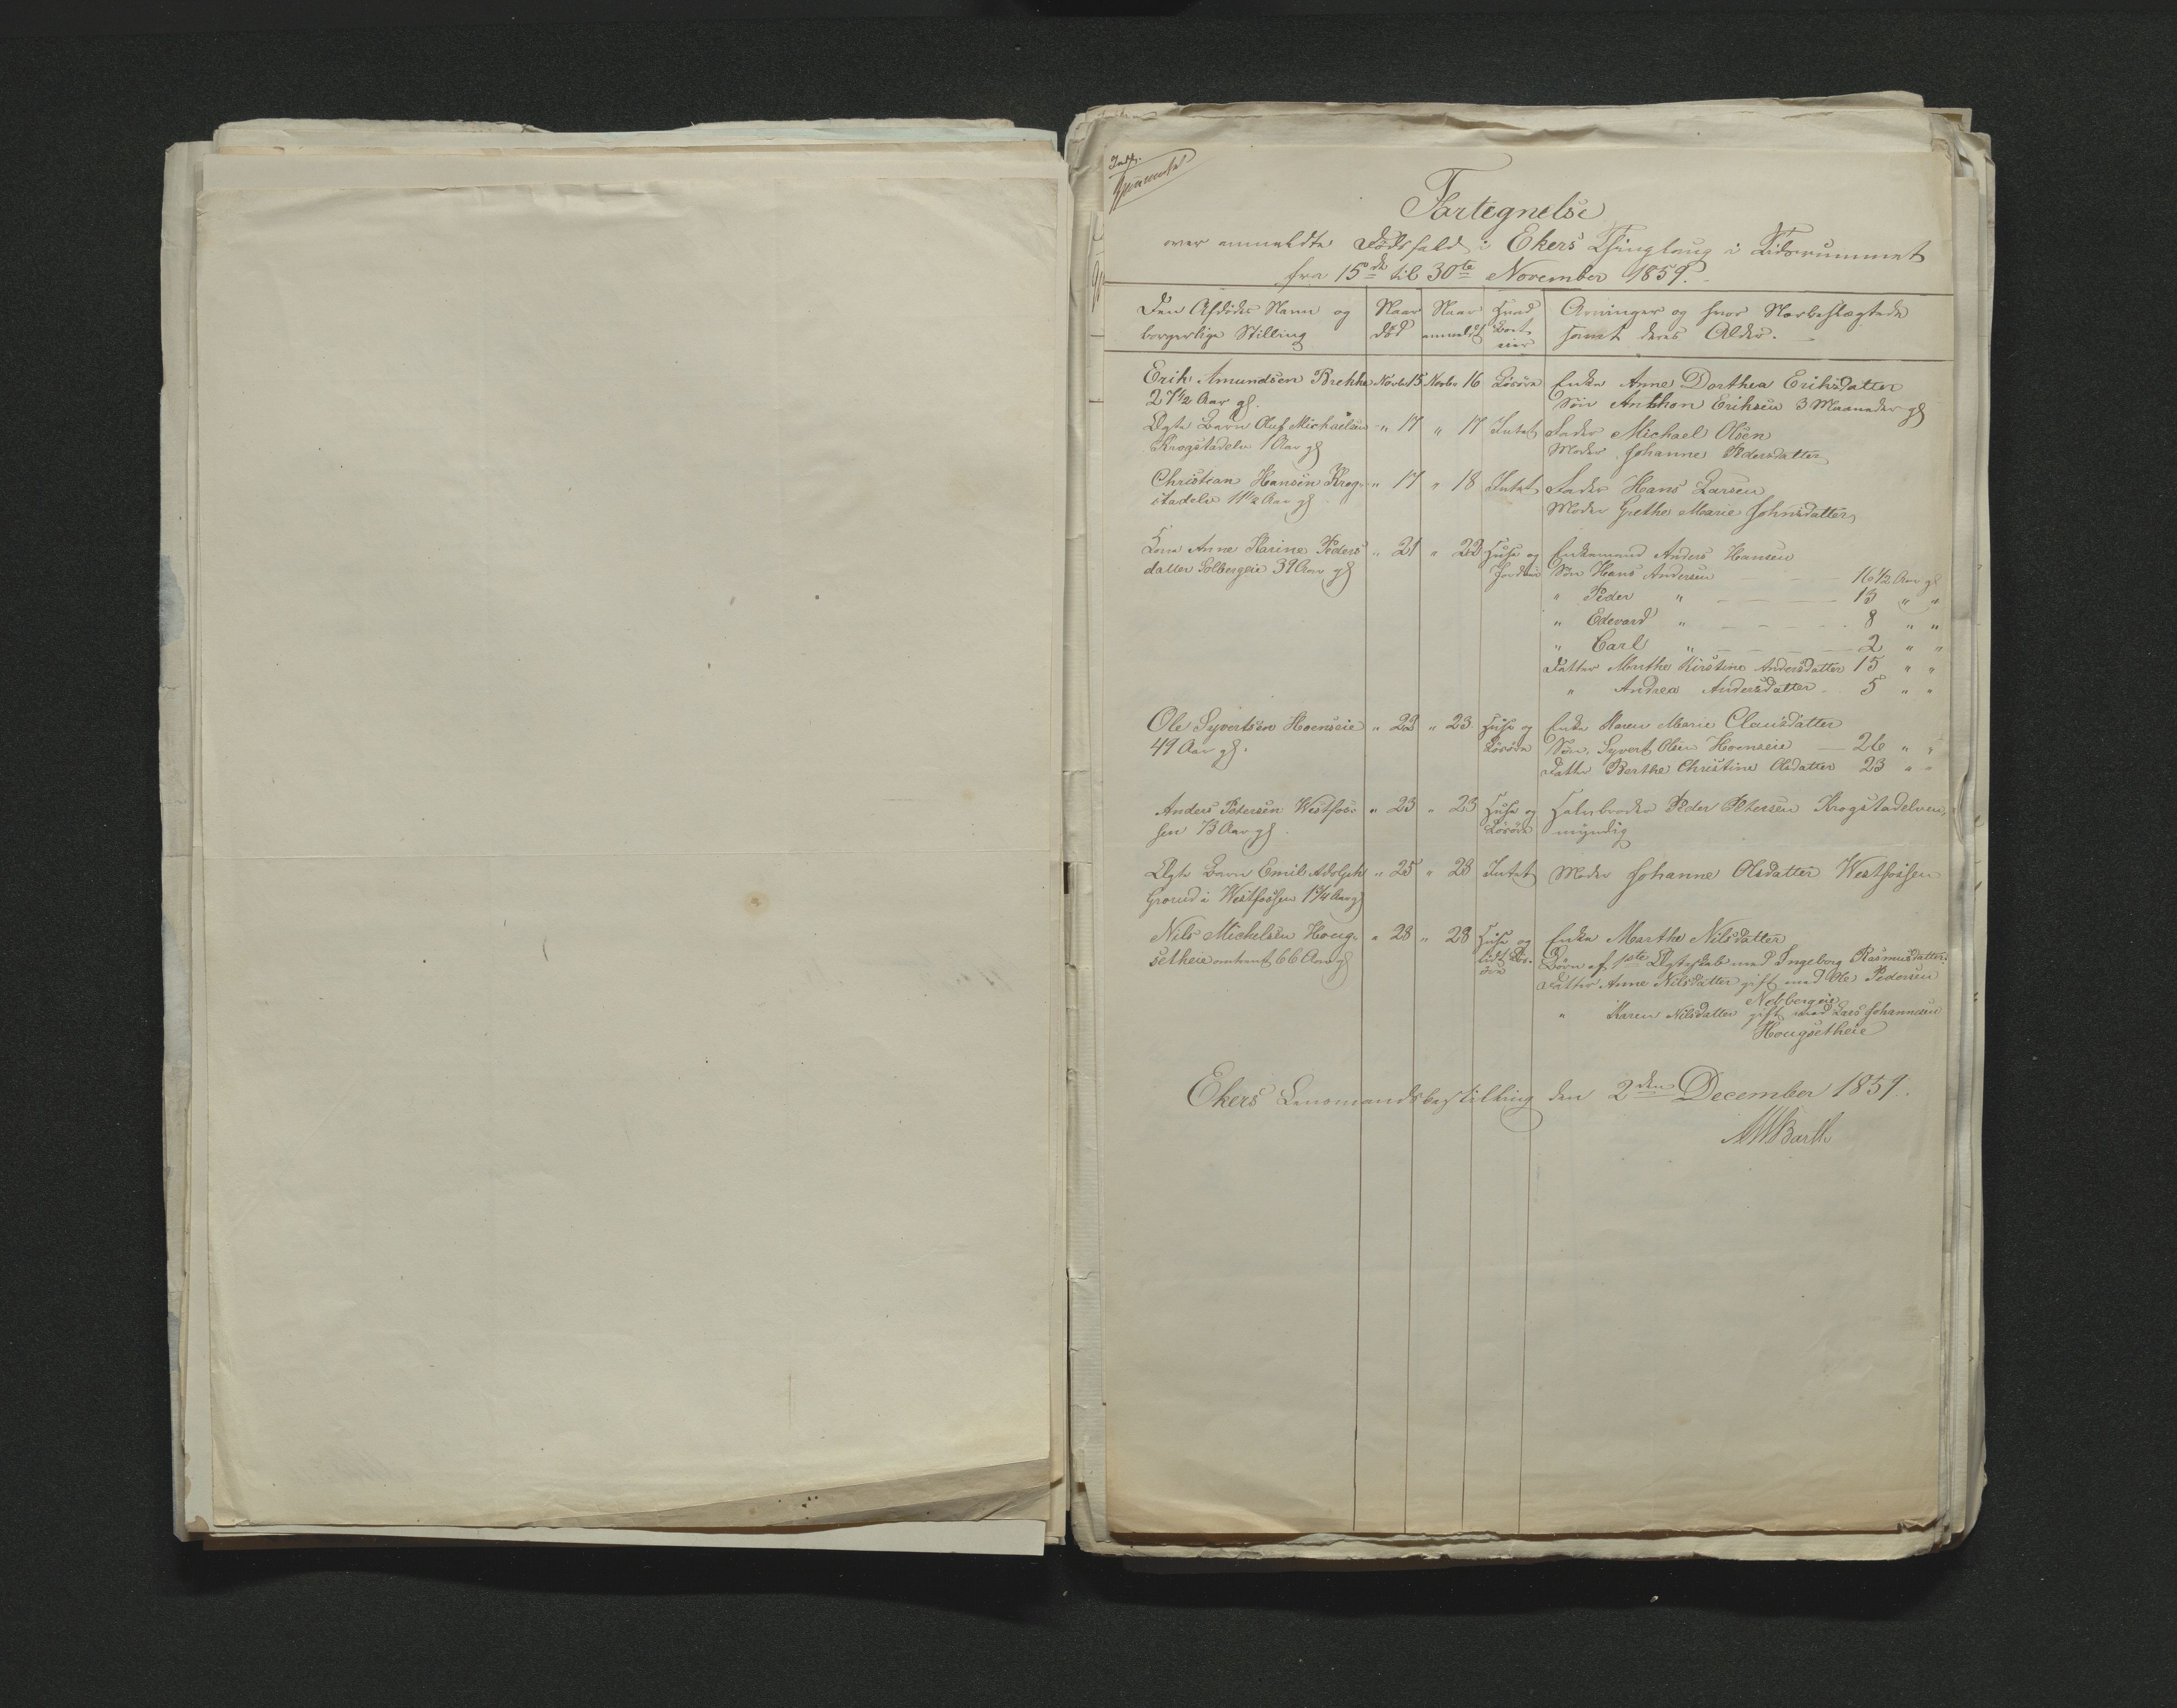 Indf.
Fortegnelse
over anmeldte Dødsfald i Ekers Thinglaug i Tidsrummet
fra 15de til 30te November 1859.
Den Afdødes Navn og
borgerlige Stilling
Naar
død
Naar
anmeldt
Hvad
Boet
eier
Arvinger og hvor Nærbeslægtede
samt deres Alder.
Erik Amundsen Brekke Novbr 15 Novbr 16 Løsøre Enke Anne Dorthea Eriksdatter
27 1/2 Aar gl. Søn Anthon Eriksen 3 Maaneder gl
Ægte Barn Oluf Michaelsen " 17 " 17 Intet Fader Michael Olsen
Krogstadelv 1 Aar gl Moder Johanne Pedersdatter
Christian Hansen Krog- " 17 " 18 Intet Fader Hans Larsen
stadelv 11 1/2 Aar gl Moder Grethe Marie Johnsdatter
Kone Anne Karine Peders " 21 " 22 Huse og Enkemand Anders Hansen
datter Solbergeie 39 Aar gl Jordleie Søn Hans Andersen 16 1/2 Aar gl
" Peder " 13 " "
" Edevard " 8 " "
" Carl " 2 " "
Datter Marthe Kirstine Andersdatter 15 " "
" Andrea Andersdatter 5 " "
Ole Syvertsen Hoenseie " 22 " 23 Huse og Enke Karen Marie Clausdatter
49 Aar gl. Løsøre Søn Syvert Olsen Hoenseie 26 " "
Datter Berthe Christine Olsdatter 23 " "
Anders Petersen Westfos- " 23 " 23 Huse og Halvbroder Peder Petersen Krogstadelven,
sen 73 Aar gl Løsøre myndig
Ægte Barn Emil Adolph " 25 " 28 Intet Moder Johanne Olsdatter Westfossen
Grorud i Westfossen 1 3/4 Aar gl
Nils Michelsen Houg- " 28 " 28 Huse og Enke Marthe Nilsdatter
setheie omtrent 66 Aar gl lidt Løs- Børn af 1ste Ægteskab med Ingeborg Rasmusdatter:
øre Datter Anne Nilsdatter gift med Ole Pedersen
" Karen Nilsdatter gift med Lars Johannesen
Hougsetheie
Ekers Lensmandsbestilling den 2den December 1859.
MWBarth